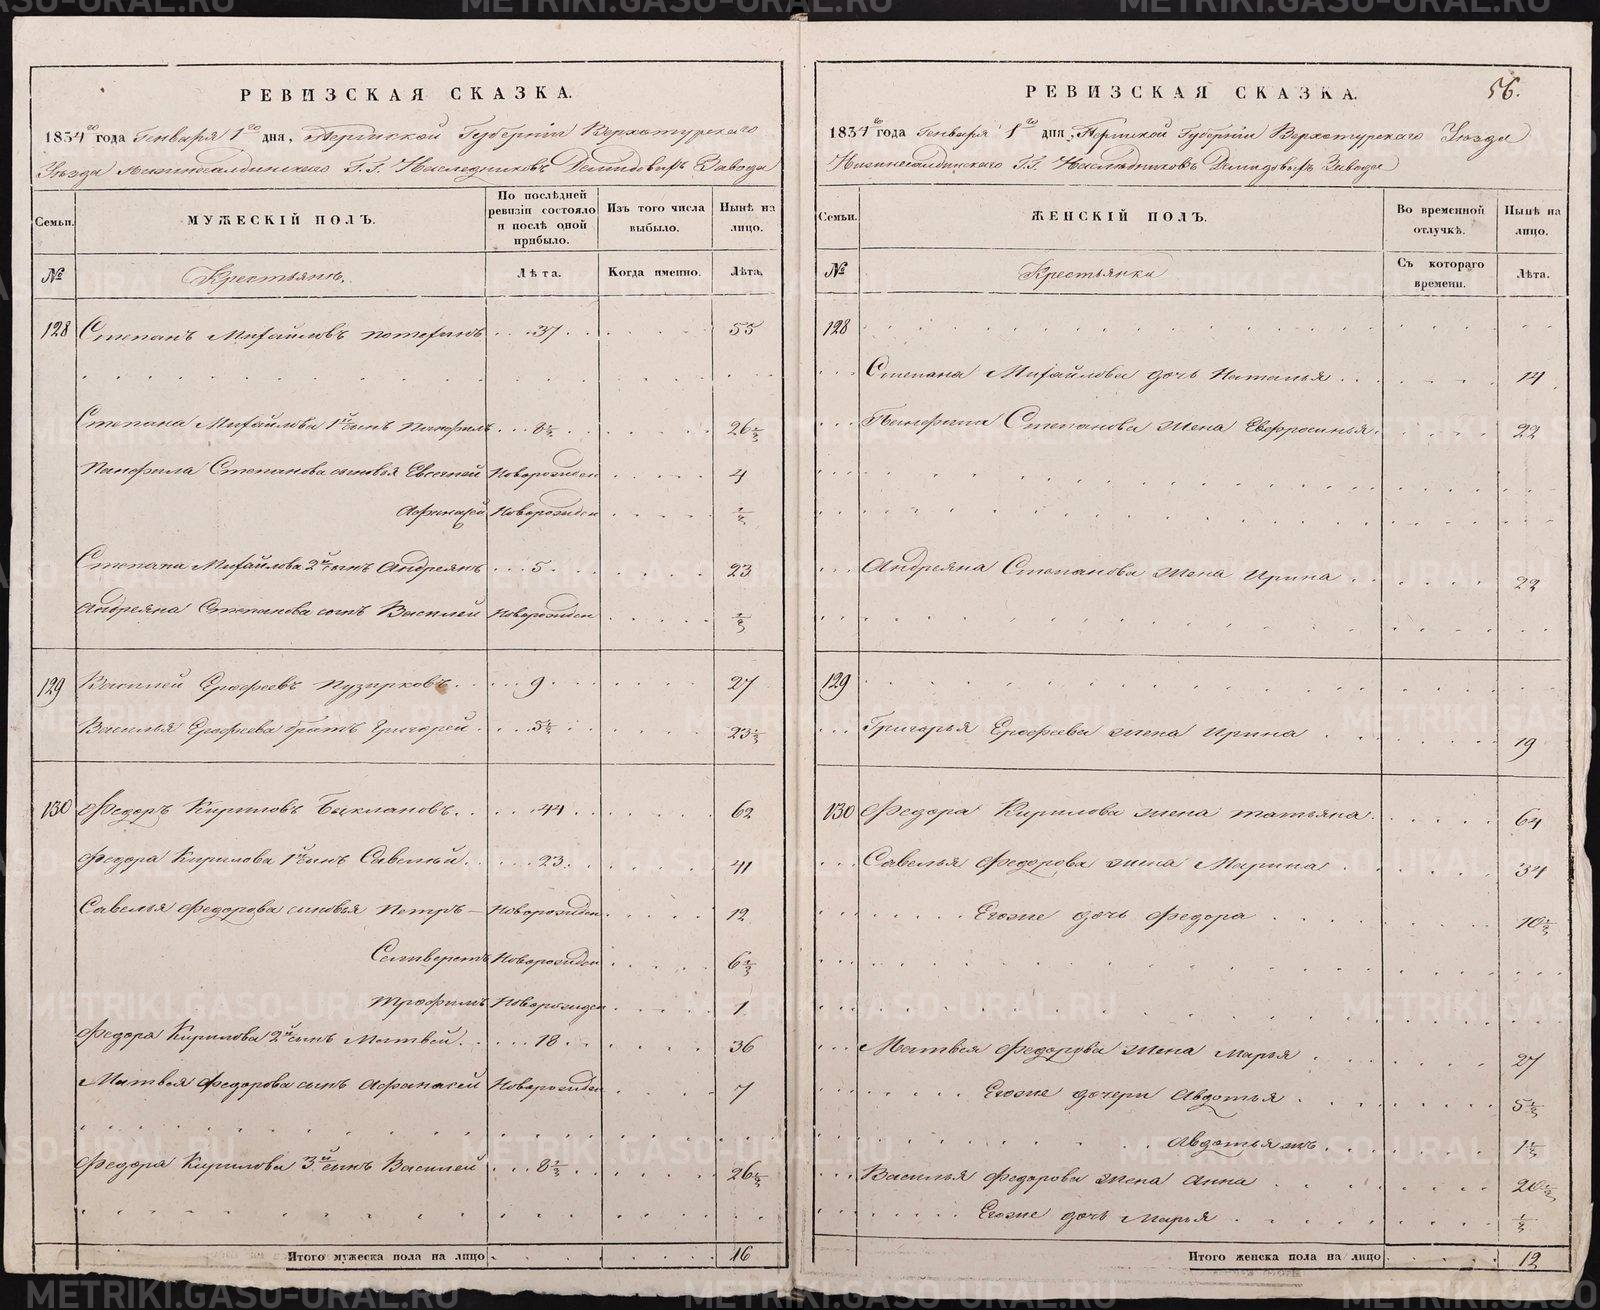 РЕВИЗСКАЯ СКАЗКА.
1834го года Генваря 1го дня, Пермской Губерніи Верхотурскаго
Уѣзда Нижнесалдинскаго Г.Г. Наследниковъ Демидовыхъ Завода
Семьи.
МУЖЕСКІЙ ПОЛЪ.
По послѣдней ревизіи состояло и послѣ оной прибыло.
Изъ того числа выбыло.
Нынѣ на лицо.
№
Крестьянъ.
Лѣта.
Когда именно.
Лѣта.
128 Степанъ Михайловъ Потехинъ 37 55
Степана Михайлова 1й сынъ Панфилъ 8½ 26½
Панфила Степанова сыновья Евсевей Новорожден 4
Афанасей Новорожден ½
Степана Михайлова 2й сынъ Андреянъ 5 23
Андреяна Степанова сынъ Василей Новорожден ½
129 Василей Ерофеевъ Пузырковъ 9 27
Василья Ерофеева братъ Григорей 5½ 23½
130 Федоръ Кириловъ Баклановъ 44 62
Федора Кирилова 1й сынъ Савелий 23 41
Савелья Федорова сыновья Петръ Новорожден 12
Селиверстъ Новорожден 6½
Трофимъ Новорожден 1
Федора Кирилова 2й сынъ Матвей 18 36
Матвея Федорова сынъ Афанасей Новорожден 7
Федора Кирилова 3й сынъ Василей 8½ 26½
Итого мужеска пола на лицо 16
56.
РЕВИЗСКАЯ СКАЗКА.
1834го года Генваря 1го дня, Пермской Губерніи Верхотурскаго Уѣзда
Нижнесалдинскаго Г.Г. Наследниковъ Демидовыхъ Завода
Семьи.
ЖЕНСКІЙ ПОЛЪ.
Во временной отлучкѣ.
Нынѣ на лицо.
№
Крестьянки
Съ котораго времени.
Лѣта.
128
Степана Михайлова дочь Наталья 14
Панфила Степанова жена Евфросинья 22
Андреяна Степанова жена Ирина 22
129
Григорья Ерофеева жена Ирина 19
130 Федора Кирилова жена Татьяна 64
Савелья Федорова жена Марина 34
Егоже дочь Федора 10½
Матвея Федорова жена Марья 27
Егоже дочери Авдотья 5½
Авдотья жъ 1½
Василья Федорова жена Анна 20½
Егоже дочь Марья ½
Итого женска пола на лицо 12
METRIKI.GASO-URAL.RU